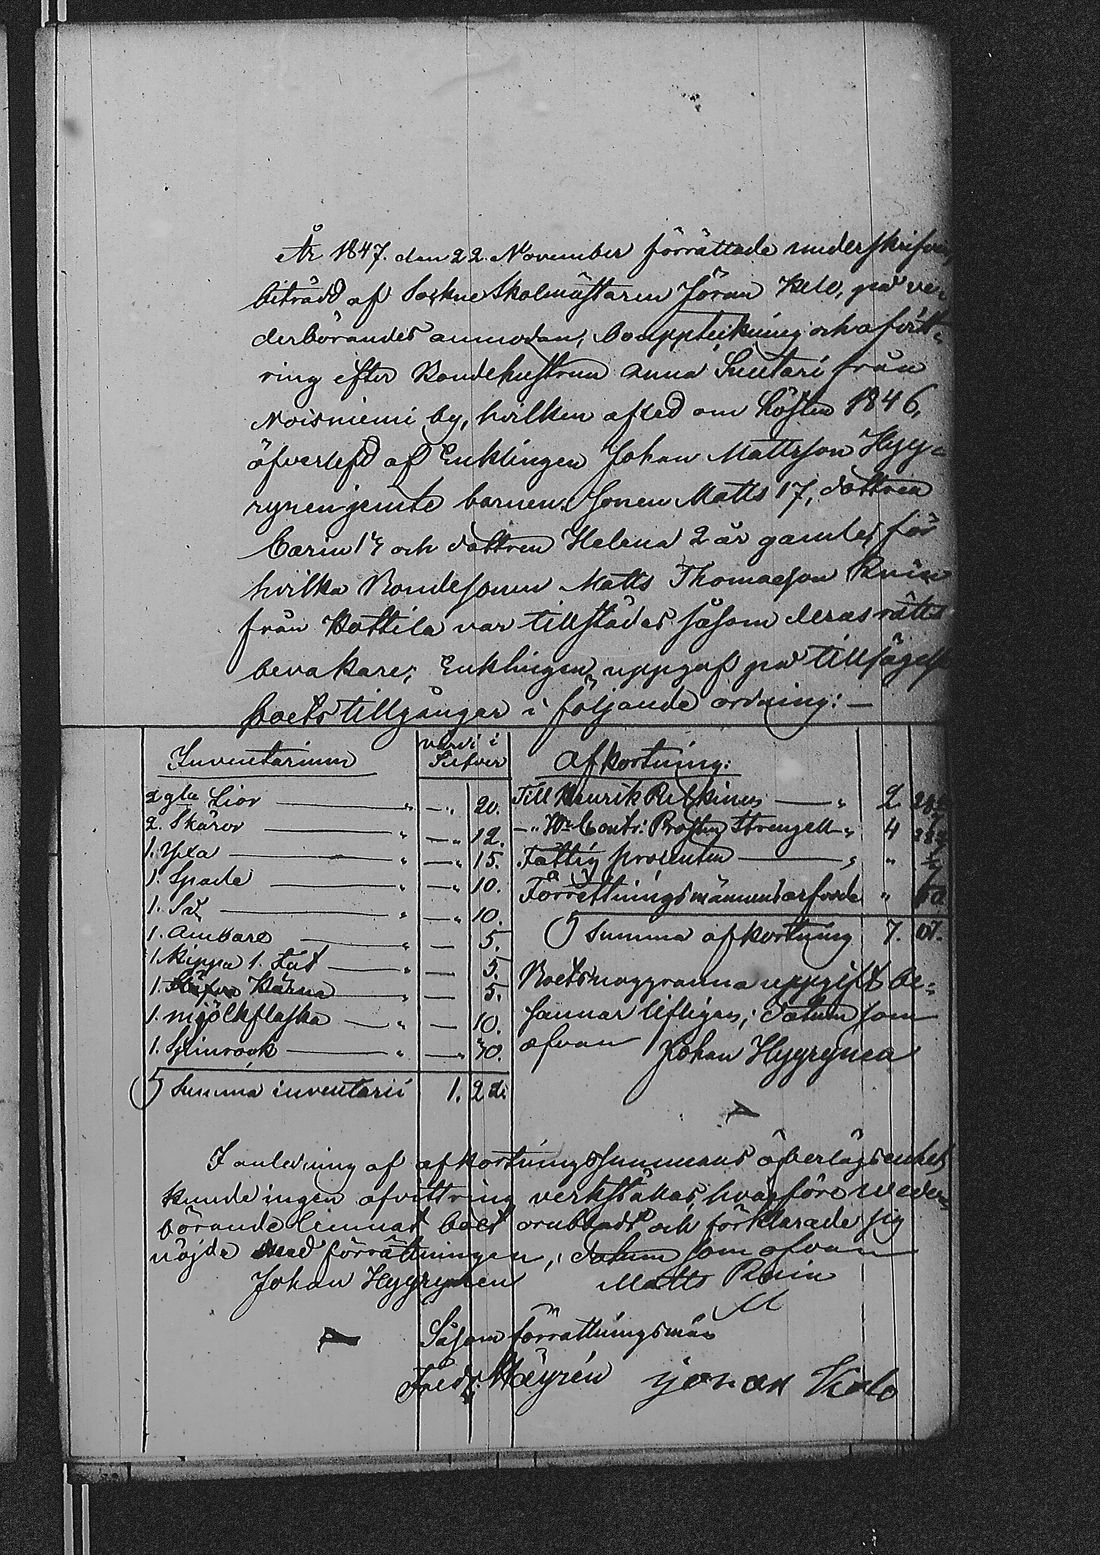 År 1847. den 22 November förrättade underskrifven,
biträdd af Sockne Skolmästaren Jöran Kelo, på ve-
derbörandes anmodan, bouppteckning och afvitt-
ring efter Bondehustrun Anna Suutari från
Noisniemi by, hvilken afled om hösten 1846,
öfverlefd af Enklingen Johan Mattsson Hyy-
rynen jemte barnen. Sonen Matts 17, dottren
Carin 14 och dottren Helena 2 år gamle, för
hvilka Bondesonen Matts Thomasson
från Kottila var tillstädes såsom deras rätts
bevakare; Enklingen uppgaf på tillsägelse
boets tillgångar i följande ordning: —
Inventarium värdi i Silfver Afkortning:
2 gla Lior — " — " 20. Till Henrik — " 2. 28
2. Skäror — " — " 12. — " Contr: Prosten Strengell — " 4 28
1. Yxa — " — " 15. Fattig procenten — " "
1. Spade — " — " 10. Förrettningsmännens arfvode " 50
1. — " — " 10. Summa afkortning 7. 07.
1. Ambare — " — 5. Boets noggranna uppgift be-
1. Kippa 1. Fat — " — 5. sannar lifligen; datum som
1. Kärna — " — 5. ofvan Johan Hyyrynen
1. mjölkflaska — " — 10.
1. Spinrock — " — " 30.
Summa inventarii 1. 22.
I anledning af afkortningssummans öfverlägsenhet
kunde ingen afvittring verkställas, hvarföre weder-
börande lemnat boet orubbadt och förklarade sig
nöjde med förrättningen, datum som ofvan
Johan Hyyrynen Matts
Såsom förrättningsmän
Fredr. Häyrén Jöran Kelo